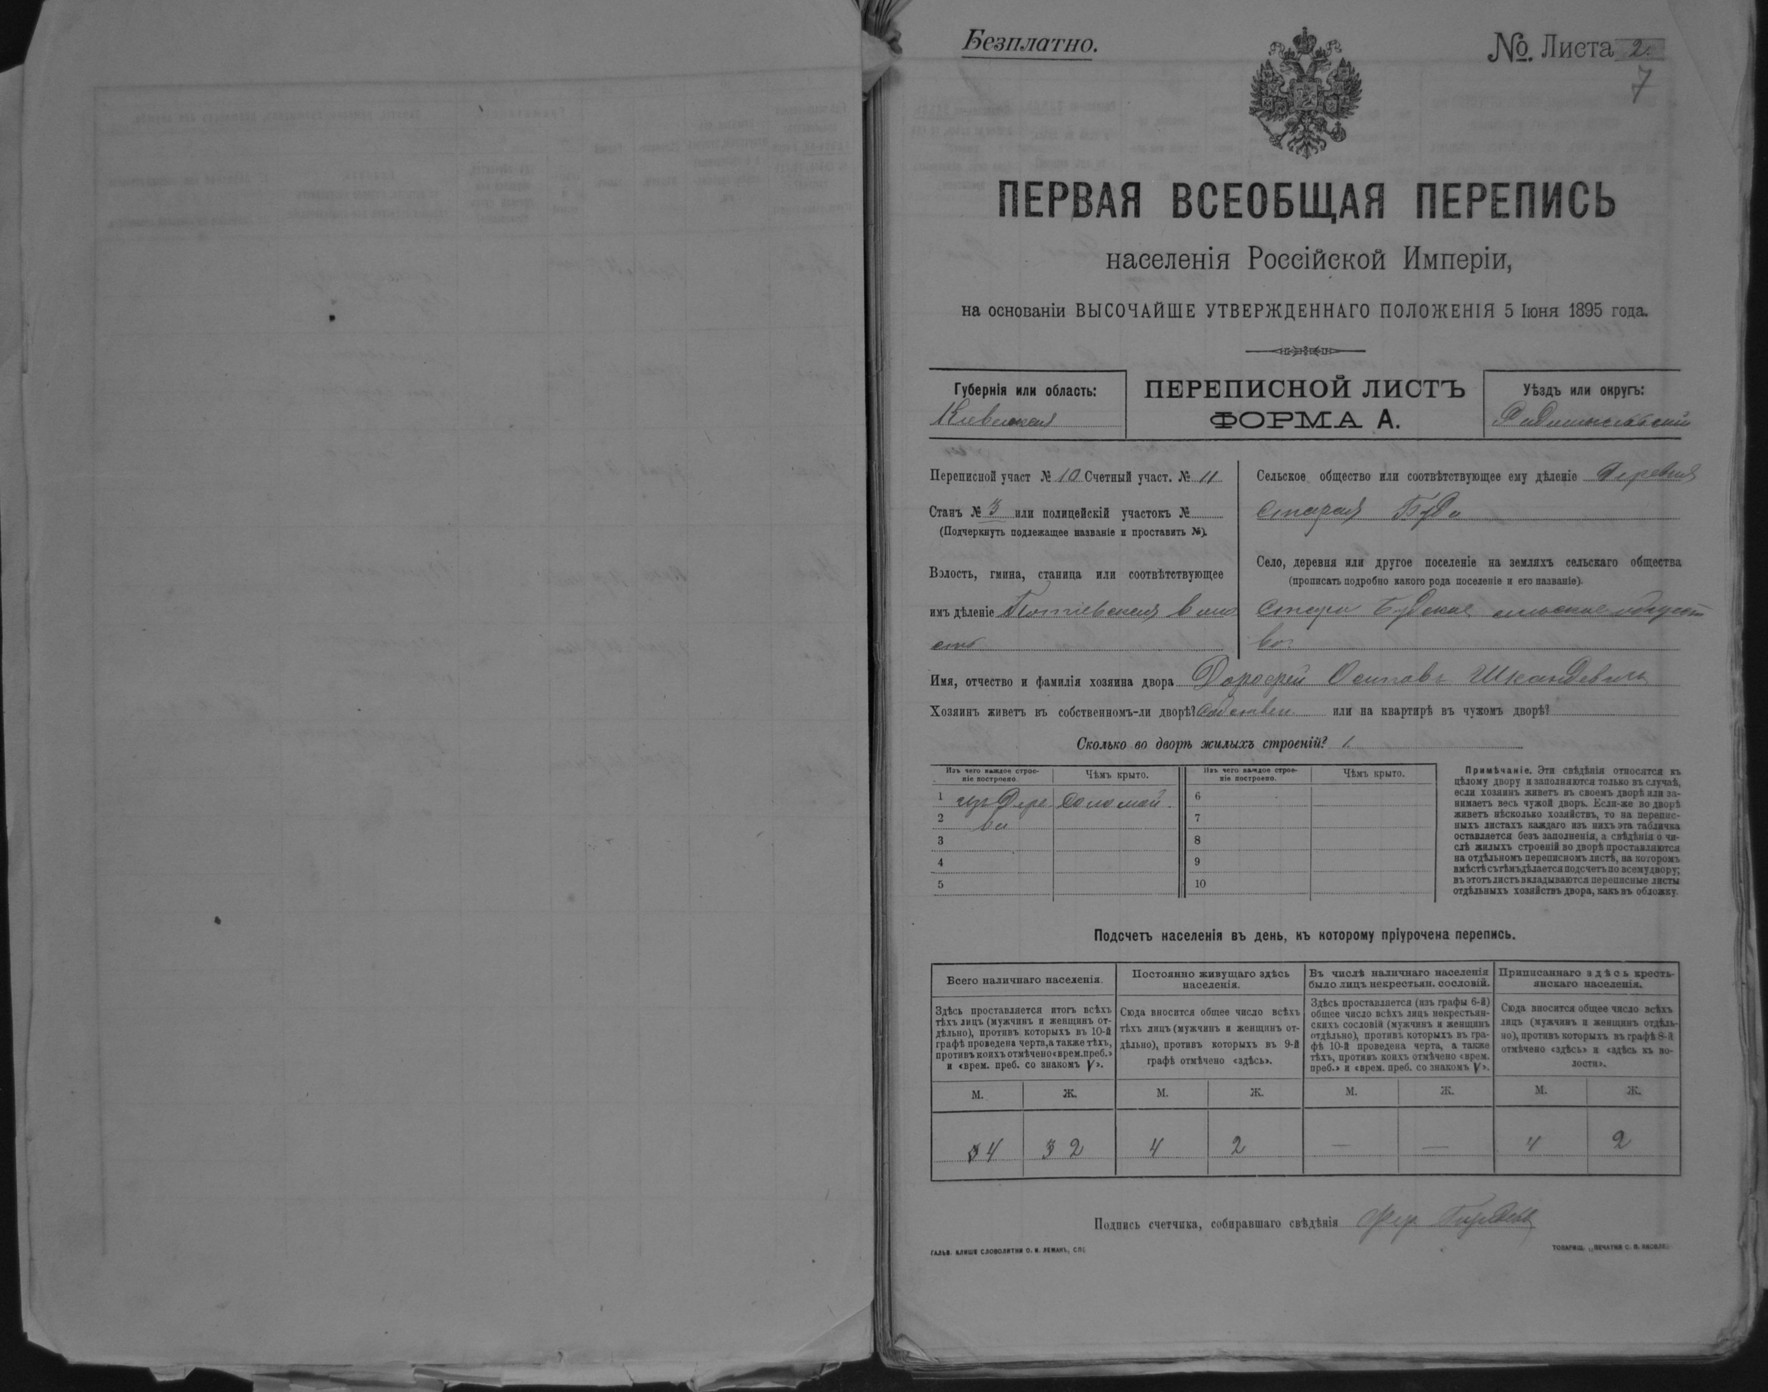 Безплатно.
№ Листа 2.
7
ПЕРВАЯ ВСЕОБЩАЯ ПЕРЕПИСЬ
населенія Россійской Имперіи,
на основаніи ВЫСОЧАЙШЕ УТВЕРЖДЕННАГО ПОЛОЖЕНІЯ 5 Іюня 1895 года.
Губернія или область:
Кіевская
ПЕРЕПИСНОЙ ЛИСТЪ
ФОРМА А.
Уѣздъ или округъ:
Радомысльскій
Переписной участ № 10 Счетный участ. № 11
Станъ № 3 или полицейскій участокъ №
(Подчеркнуть подлежащее названіе и проставить №).
Волость, гмина, станица или соотвѣтствующее
имъ дѣленіе Потіевская воло
сть
Сельское общество или соотвѣтствующее ему дѣленіе Деревня
Старая Буда
Село, деревня или другое поселеніе на земляхъ сельскаго общества
(прописать подробно какого рода поселеніе и его названіе).
Старо Будское сельское общест
во.
Имя, отчество и фамилія хозяина двора Дорофей Осиповъ Шкандевиль
Хозяинъ живетъ въ собственномъ-ли дворѣ? собствен или на квартирѣ въ чужомъ дворѣ?
Сколько во дворѣ жилыхъ строеній? 1.
Изъ чего каждое строе-
ніе построено.
Чѣмъ крыто.
Изъ чего каждое строе-
ніе построено.
Чѣмъ крыто.
1 изъ Дере Соломой. 6
2 ва 7
3 8
4 9
5 10
Примѣчаніе. Эти свѣдѣнія относятся къ
цѣлому двору и заполняются только въ случаѣ,
если хозяинъ живетъ въ своемъ дворѣ или за-
нимаетъ весь чужой дворъ. Если-же во дворѣ
живетъ нѣсколько хозяйствъ, то на перепис-
ныхъ листахъ каждаго изъ нихъ эта табличка
оставляется безъ заполненія, а свѣдѣнія о чи-
слѣ жилыхъ строеній во дворѣ проставляются
на отдѣльномъ переписномъ листѣ, на которомъ
вмѣстѣ съ тѣмъ дѣлается подсчетъ по всему двору;
въ этотъ листъ вкладываются переписные листы
отдѣльныхъ хозяйствъ двора, какъ въ обложку.
Подсчетъ населенія въ день, къ которому пріурочена перепись.
Всего наличнаго населенія.
Здѣсь проставляется итогъ всѣхъ
тѣхъ лицъ (мужчинъ и женщинъ от-
дѣльно), противъ которыхъ въ 10-й
графѣ проведена черта, а также тѣхъ,
противъ коихъ отмѣчено «врем. преб.»
и «врем. преб. со знакомъ V».
Постоянно живущаго здѣсь
населенія.
Сюда вносится общее число всѣхъ
тѣхъ лицъ (мужчинъ и женщинъ от-
дѣльно), противъ которыхъ въ 9-й
графѣ отмѣчено «здѣсь».
Въ числѣ наличнаго населенія
было лицъ некрестьян. сословій.
Здѣсь проставляется (изъ графы 6-й)
общее число всѣхъ лицъ некрестьян-
скихъ сословій (мужчинъ и женщинъ
отдѣльно), противъ которыхъ въ гра-
фѣ 10-й проведена черта, а также
тѣхъ, противъ коихъ отмѣчено «врем.
преб.» и «врем. преб. со знакомъ V».
Приписаннаго здѣсь кресть-
янскаго населенія.
Сюда вносится общее число всѣхъ
лицъ (мужчинъ и женщинъ отдѣль-
но), противъ которыхъ въ графѣ 8-й
отмѣчено «здѣсь» и «здѣсь въ во-
лости».
М. Ж. М. Ж. М. Ж. М. Ж.
34 32 4 2 — — 4 2
Подпись счетчика, собиравшаго свѣдѣнія
ГАЛЬВ. КЛИШЕ СЛОВОЛИТНИ О. И. ЛЕМАНЪ, СПБ.
ТОВАРИЩ. „ПЕЧАТНЯ С. П. ЯКОВЛЕ